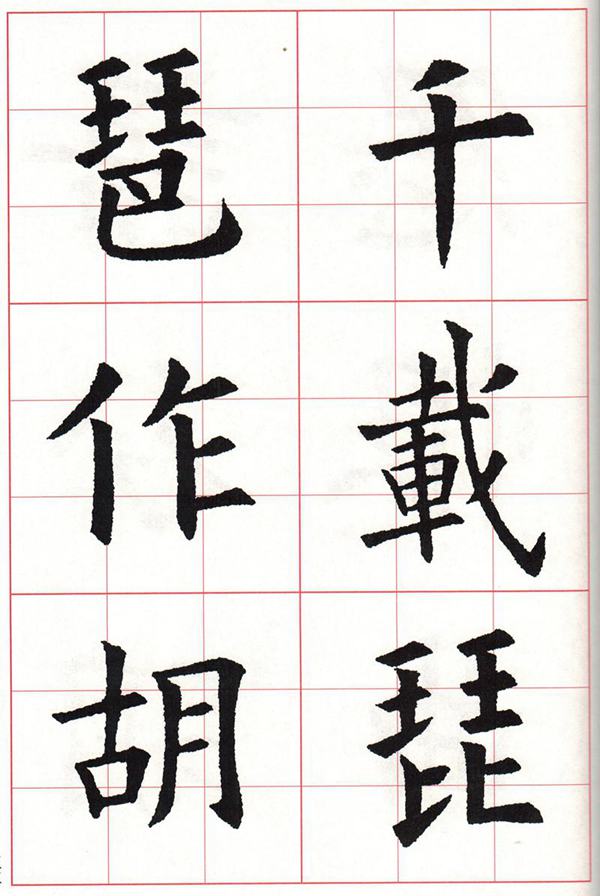 千載琵
琶作胡